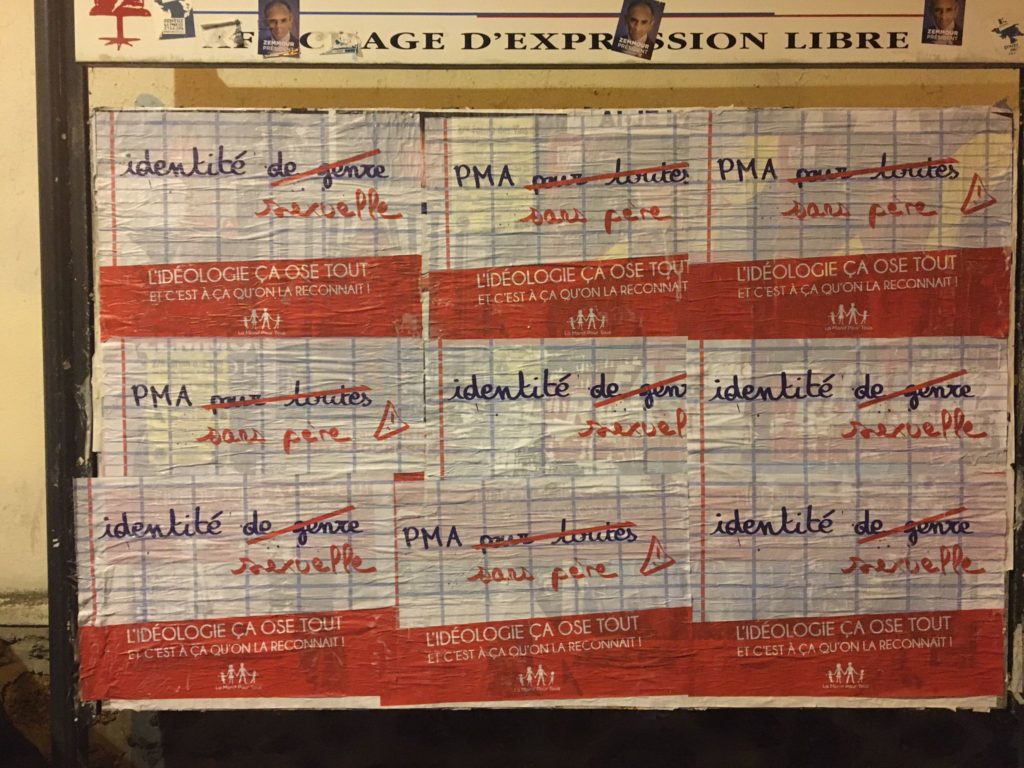 AFFICHAGE D'EXPRESSION LIBRE
ZEMMOUR
PRÉSIDENT
ZEMMOUR
PRÉSIDENT
ZEMMOUR
PRÉSIDENT
identité de genre
sexuelle
L'IDÉOLOGIE ÇA OSE TOUT
ET C'EST À ÇA QU'ON LA RECONNAIT !
La Manif Pour Tous
PMA pour toutes
sans père
L'IDÉOLOGIE ÇA OSE TOUT
ET C'EST À ÇA QU'ON LA RECONNAIT
La Manif Pour Tous
PMA pour toutes
sans père
L'IDÉOLOGIE ÇA OSE TOUT
ET C'EST À ÇA QU'ON LA RECONNAIT !
La Manif Pour Tous
PMA pour toutes
sans père
identité de gen
sexuel
identité de genre
sexuelle
identité de genre
sexuelle
L'IDÉOLOGIE ÇA OSE TOUT
ET C'EST À ÇA QU'ON LA RECONNAIT !
La Manif Pour Tous
PMA pour toutes
sans père
L'IDÉOLOGIE ÇA OSE TOUT
ET C'EST À ÇA QU'ON LA RECONNAIT !
La Manif Pour Tous
identité de genre
sexuelle
L'IDÉOLOGIE ÇA OSE TOUT
ET C'EST À ÇA QU'ON LA RECONNAIT !
La Manif Pour Tous